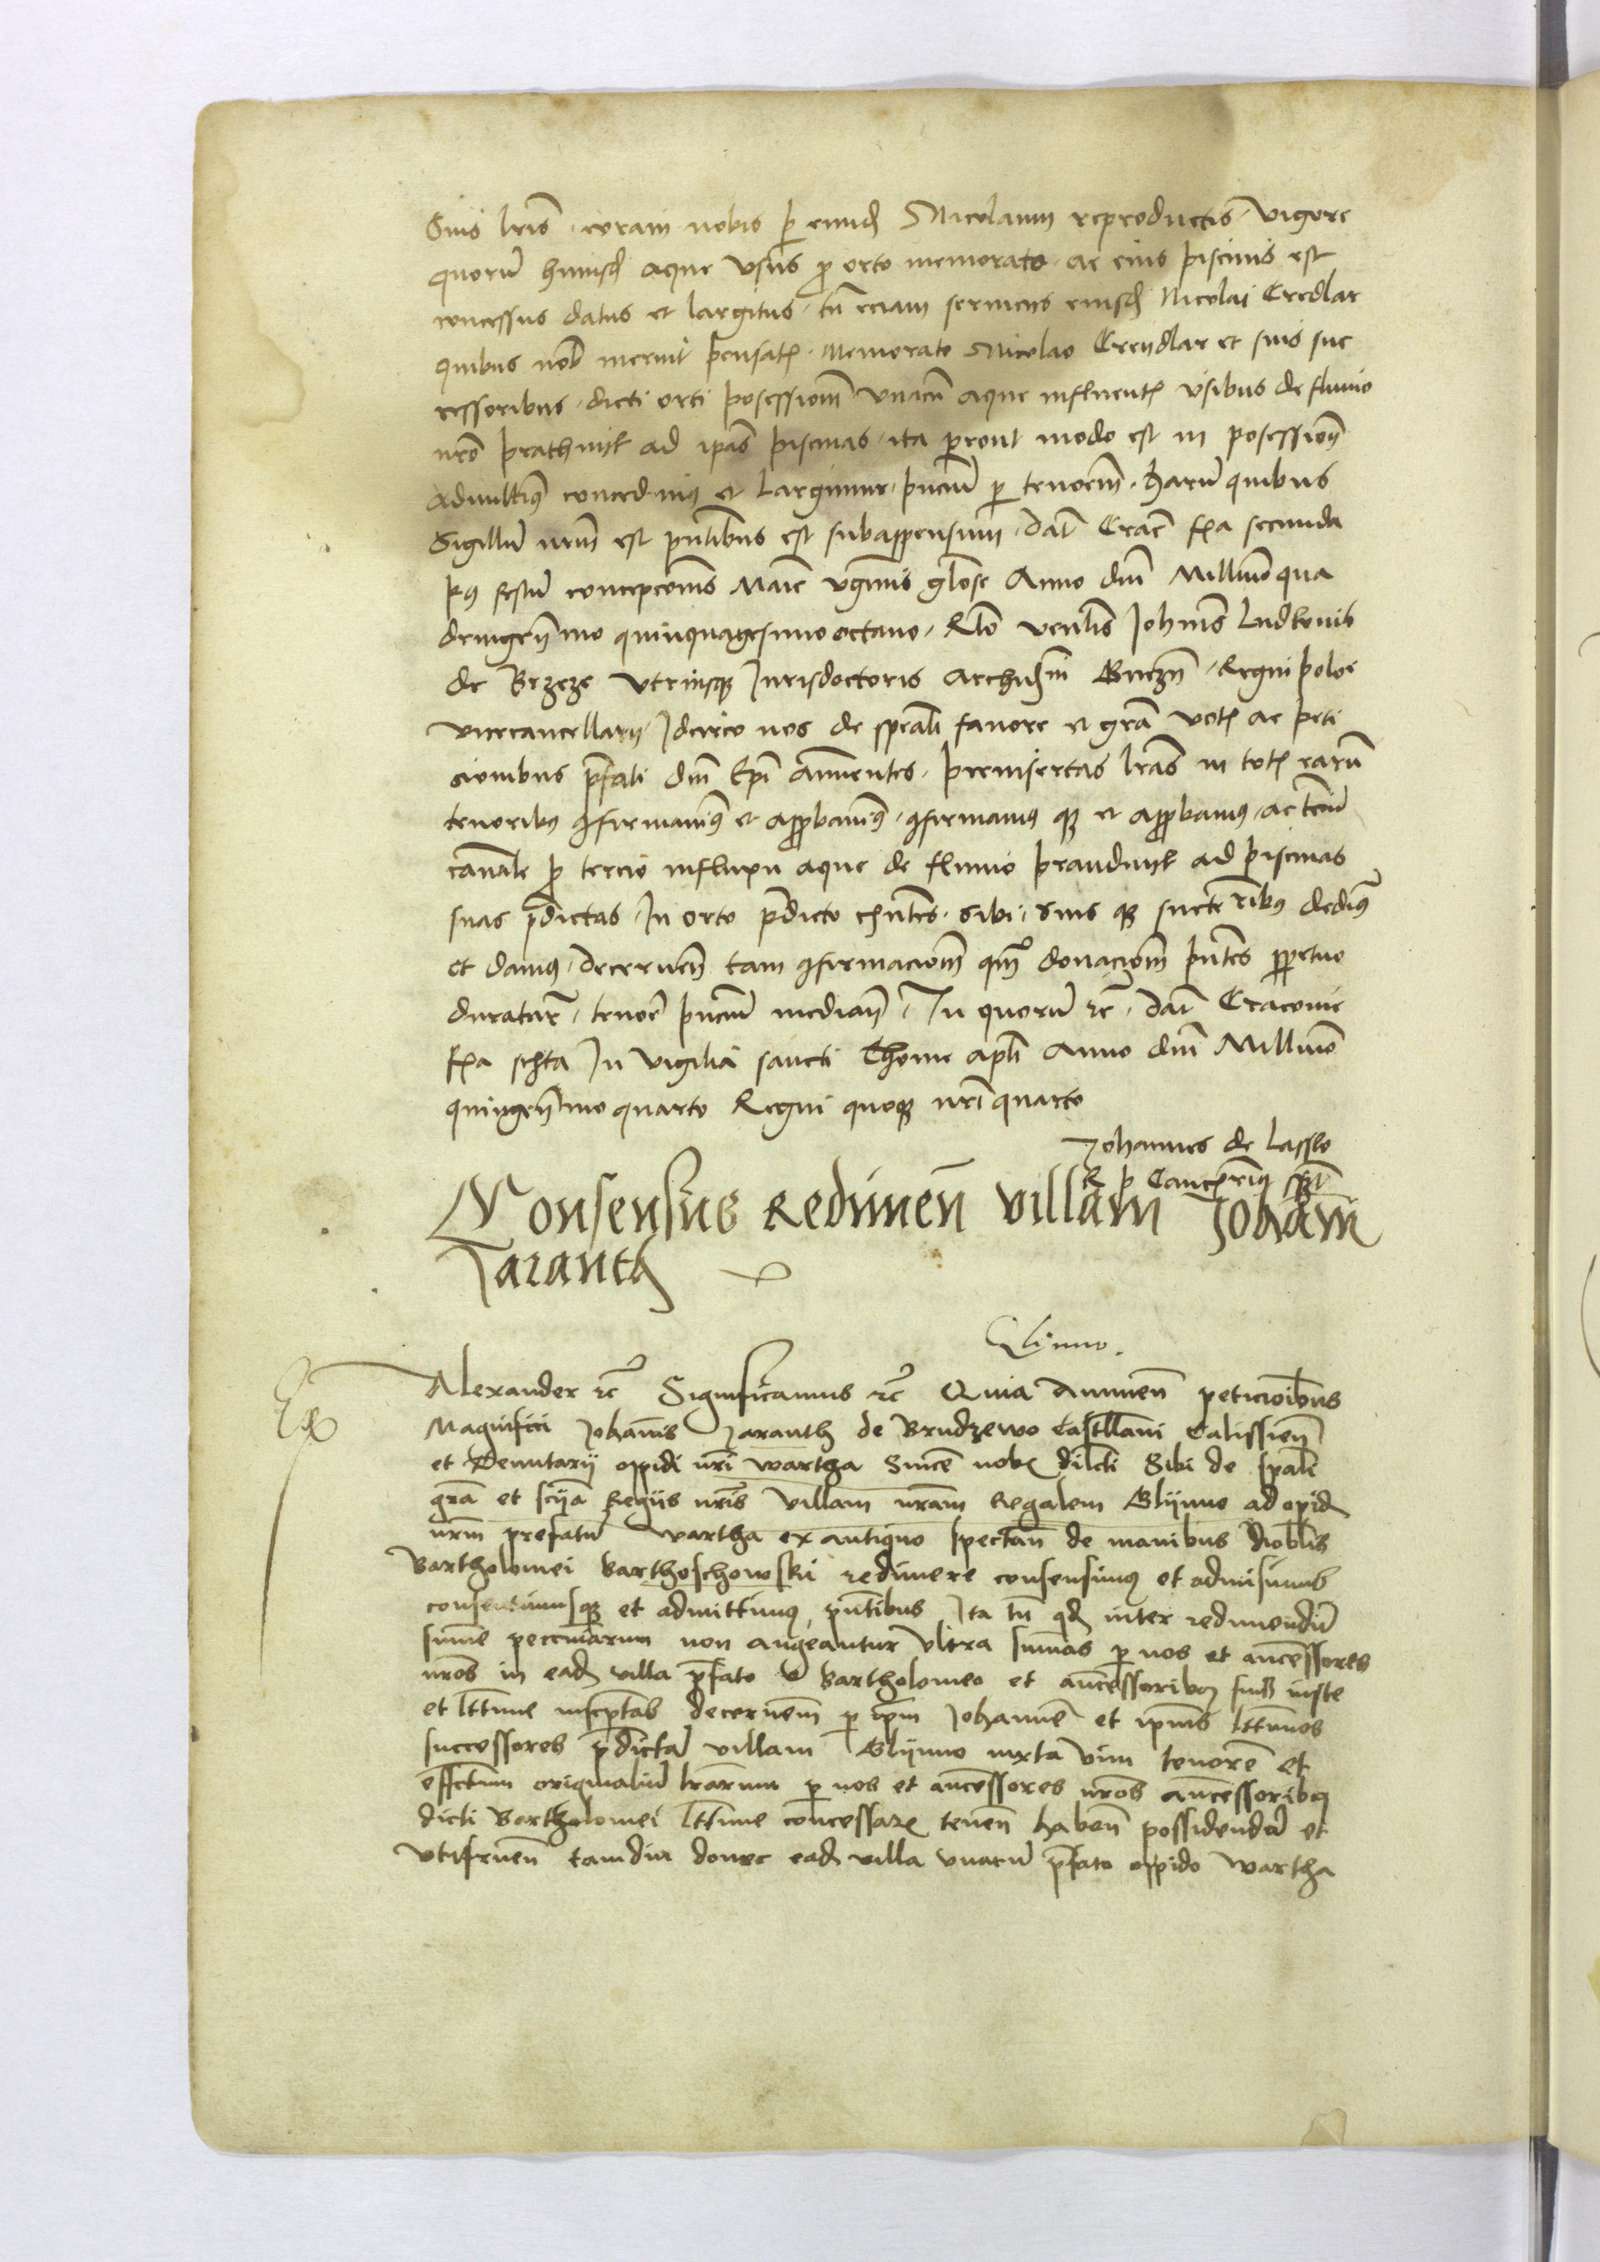 Suis lris coram nobis p eund Nicolaum reproductis vigore
quoru huiusd aque usus p orto memorato ac eius piscinis est
concessus datus et largitus tn eciam serviciis eiusd Nicolai Credlar
quibus nob meruit pensat Memorato Nicolao Creydlar et suis suc
cessoribus dicti orti posession unacu aque influent usibus de fluvio
nro prathnik ad ipas piscinas ita prout modo est in posession
admittim concedimus et largimur pncium p tenorem haru quibus
Sigillu nrm est pntibus est subappensum dat Crac fia secunda
p festu concepcionis Marie vginis glose Anno dni Millimo qua
dringen mo quinquagesimo octavo Rlo venlis Johnis Ludkonis
de Brzeze utriusq Jurisdoctoris archid Gnezn Regni poloe
vicecancellarii Idcirco nos de speali favore et gra votis ac peti
cionibus pfati dni Epi annuentes preinsertas lras in totis earu
tenoribus confirmavim et approbavim confirmamus q et approbamus ac
canale p tercio influxu aque de fluvio prandnik ad piscinas
suas pdictas In orto pdicto existentes sibi suis q successoribus dedim
et damus decernen tam confirmacionem qm donacionem pntes ppetuo
duratur tenore pncium median In quoru rc dat Cracovie
fia sexta In vigilia sancti Thome apli Anno dni Millimo
quingen mo quarto Regni quoq nri quarto
Johannes de Lassko
R p Cancellarius sst
Consensus Redimen villam Joham
Jaranth
Glinno
Alexander rc Significamus rc Quia Annuen peticionibus
Magnifici Johannis Jaranth de Brudzewo Castellani Calissien
et tenutarii oppidi nri wartha Since nob dilcti Sibi de spali
gra et Regiis nris villam nram Regalem Glijnno ad opid
nrm prefatu wartha ex antiquo spectan de manibus Nobilis
Bartholomei Barthoschowski redimere consensimus et admisimus
consentimusq et admittimus pntibus Ita tn qd inter redimendu
summe pecuniarum non augeantur ultra summas p nos et ancessores
nros in ead villa pfato Bartholomeo et ancessoribus suis iuste
et lttime inscptas decernem p ipm Johanne et ipius lttimos
successores pdicta villam Glijnno iuxta vim tenore et
effectum originaliu lrarum p nos et ancessores nros ancessoribus
dicti Bartholomei lttime concessar tenen haben possidenda et
utifruen tamdiu donec ead villa unacu pfato oppido wartha